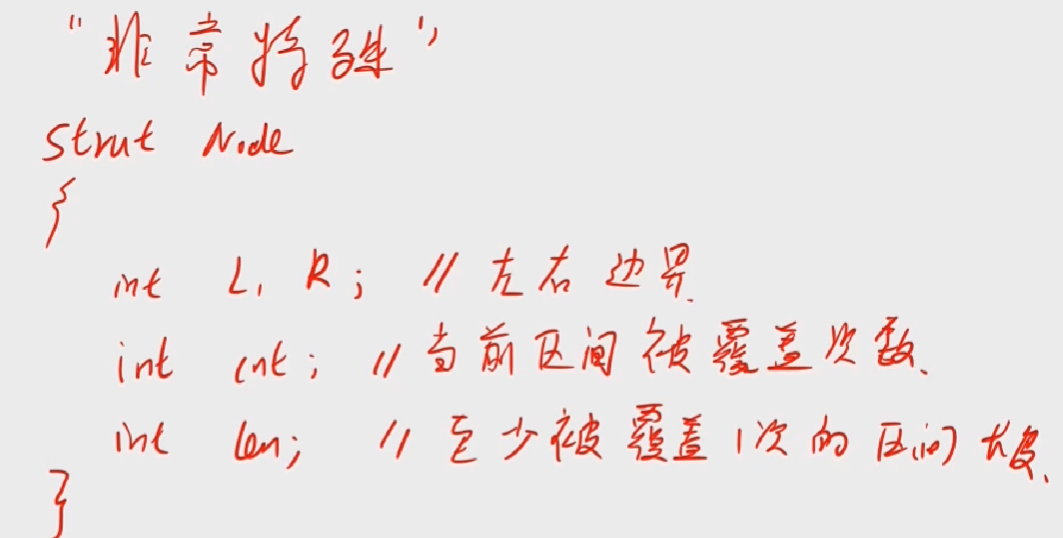 "非常特殊"
Strut Node
{
int L, R; // 左右边界
int cnt; // 当前区间被覆盖次数、
int len; // 至少被覆盖1次的区间长度、
}